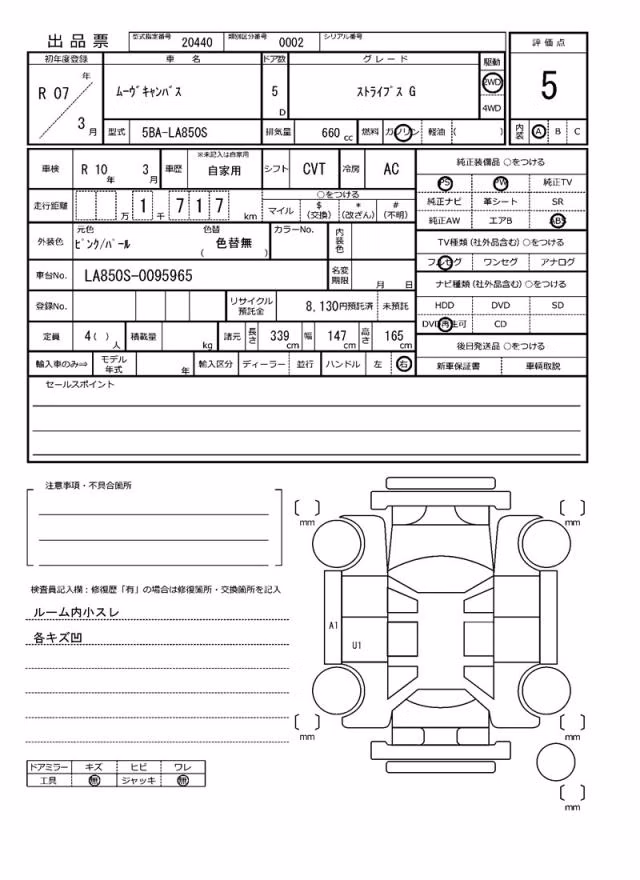 出品票 型式指定番号 20440 類別区分番号 0002 シリアル番号
評価点
5
内装 A B C
初年度登録 車名 ドア数 グレード 駆動
R 07 年 3 月 ムーヴキャンバス 5 D ストライプス G 2WD 4WD
型式 5BA-LA850S 排気量 660 cc 燃料 ガソリン 軽油 ( )
車検 R 10 年 3 月 車歴 ※未記入は自家用 自家用 シフト CVT 冷房 AC
走行距離 万 1 千 7 1 7 km ○をつける
マイル $ (交換) * (改ざん) # (不明)
外装色 元色 ピンク/パール 色替 ( 色替無 ) カラーNo. 内装色
車台No. LA850S-0095965 名変期限 月 日
登録No. リサイクル預託金 8,130円預託済 未預託
定員 4 ( ) 人 積載量 kg 諸元 長さ 339 cm 幅 147 cm 高さ 165 cm
輸入車のみ⇒ モデル年式 年 輸入区分 ディーラー 並行 ハンドル 左 右
純正装備品 ○をつける
PS PW 純正TV
純正ナビ 革シート SR
純正AW エアB ABS
TV種類 (社外品含む) ○をつける
フルセグ ワンセグ アナログ
ナビ種類 (社外品含む) ○をつける
HDD DVD SD
DVD再生可 CD
後日発送品 ○をつける
新車保証書 車輌取説
セールスポイント
注意事項・不具合箇所
検査員記入欄：修復歴「有」の場合は修復箇所・交換箇所を記入
ルーム内小スレ
各キズ凹
ドアミラー キズ ヒビ ワレ
工具 無 ジャッキ 無
mm mm
A1
U1
mm mm
mm